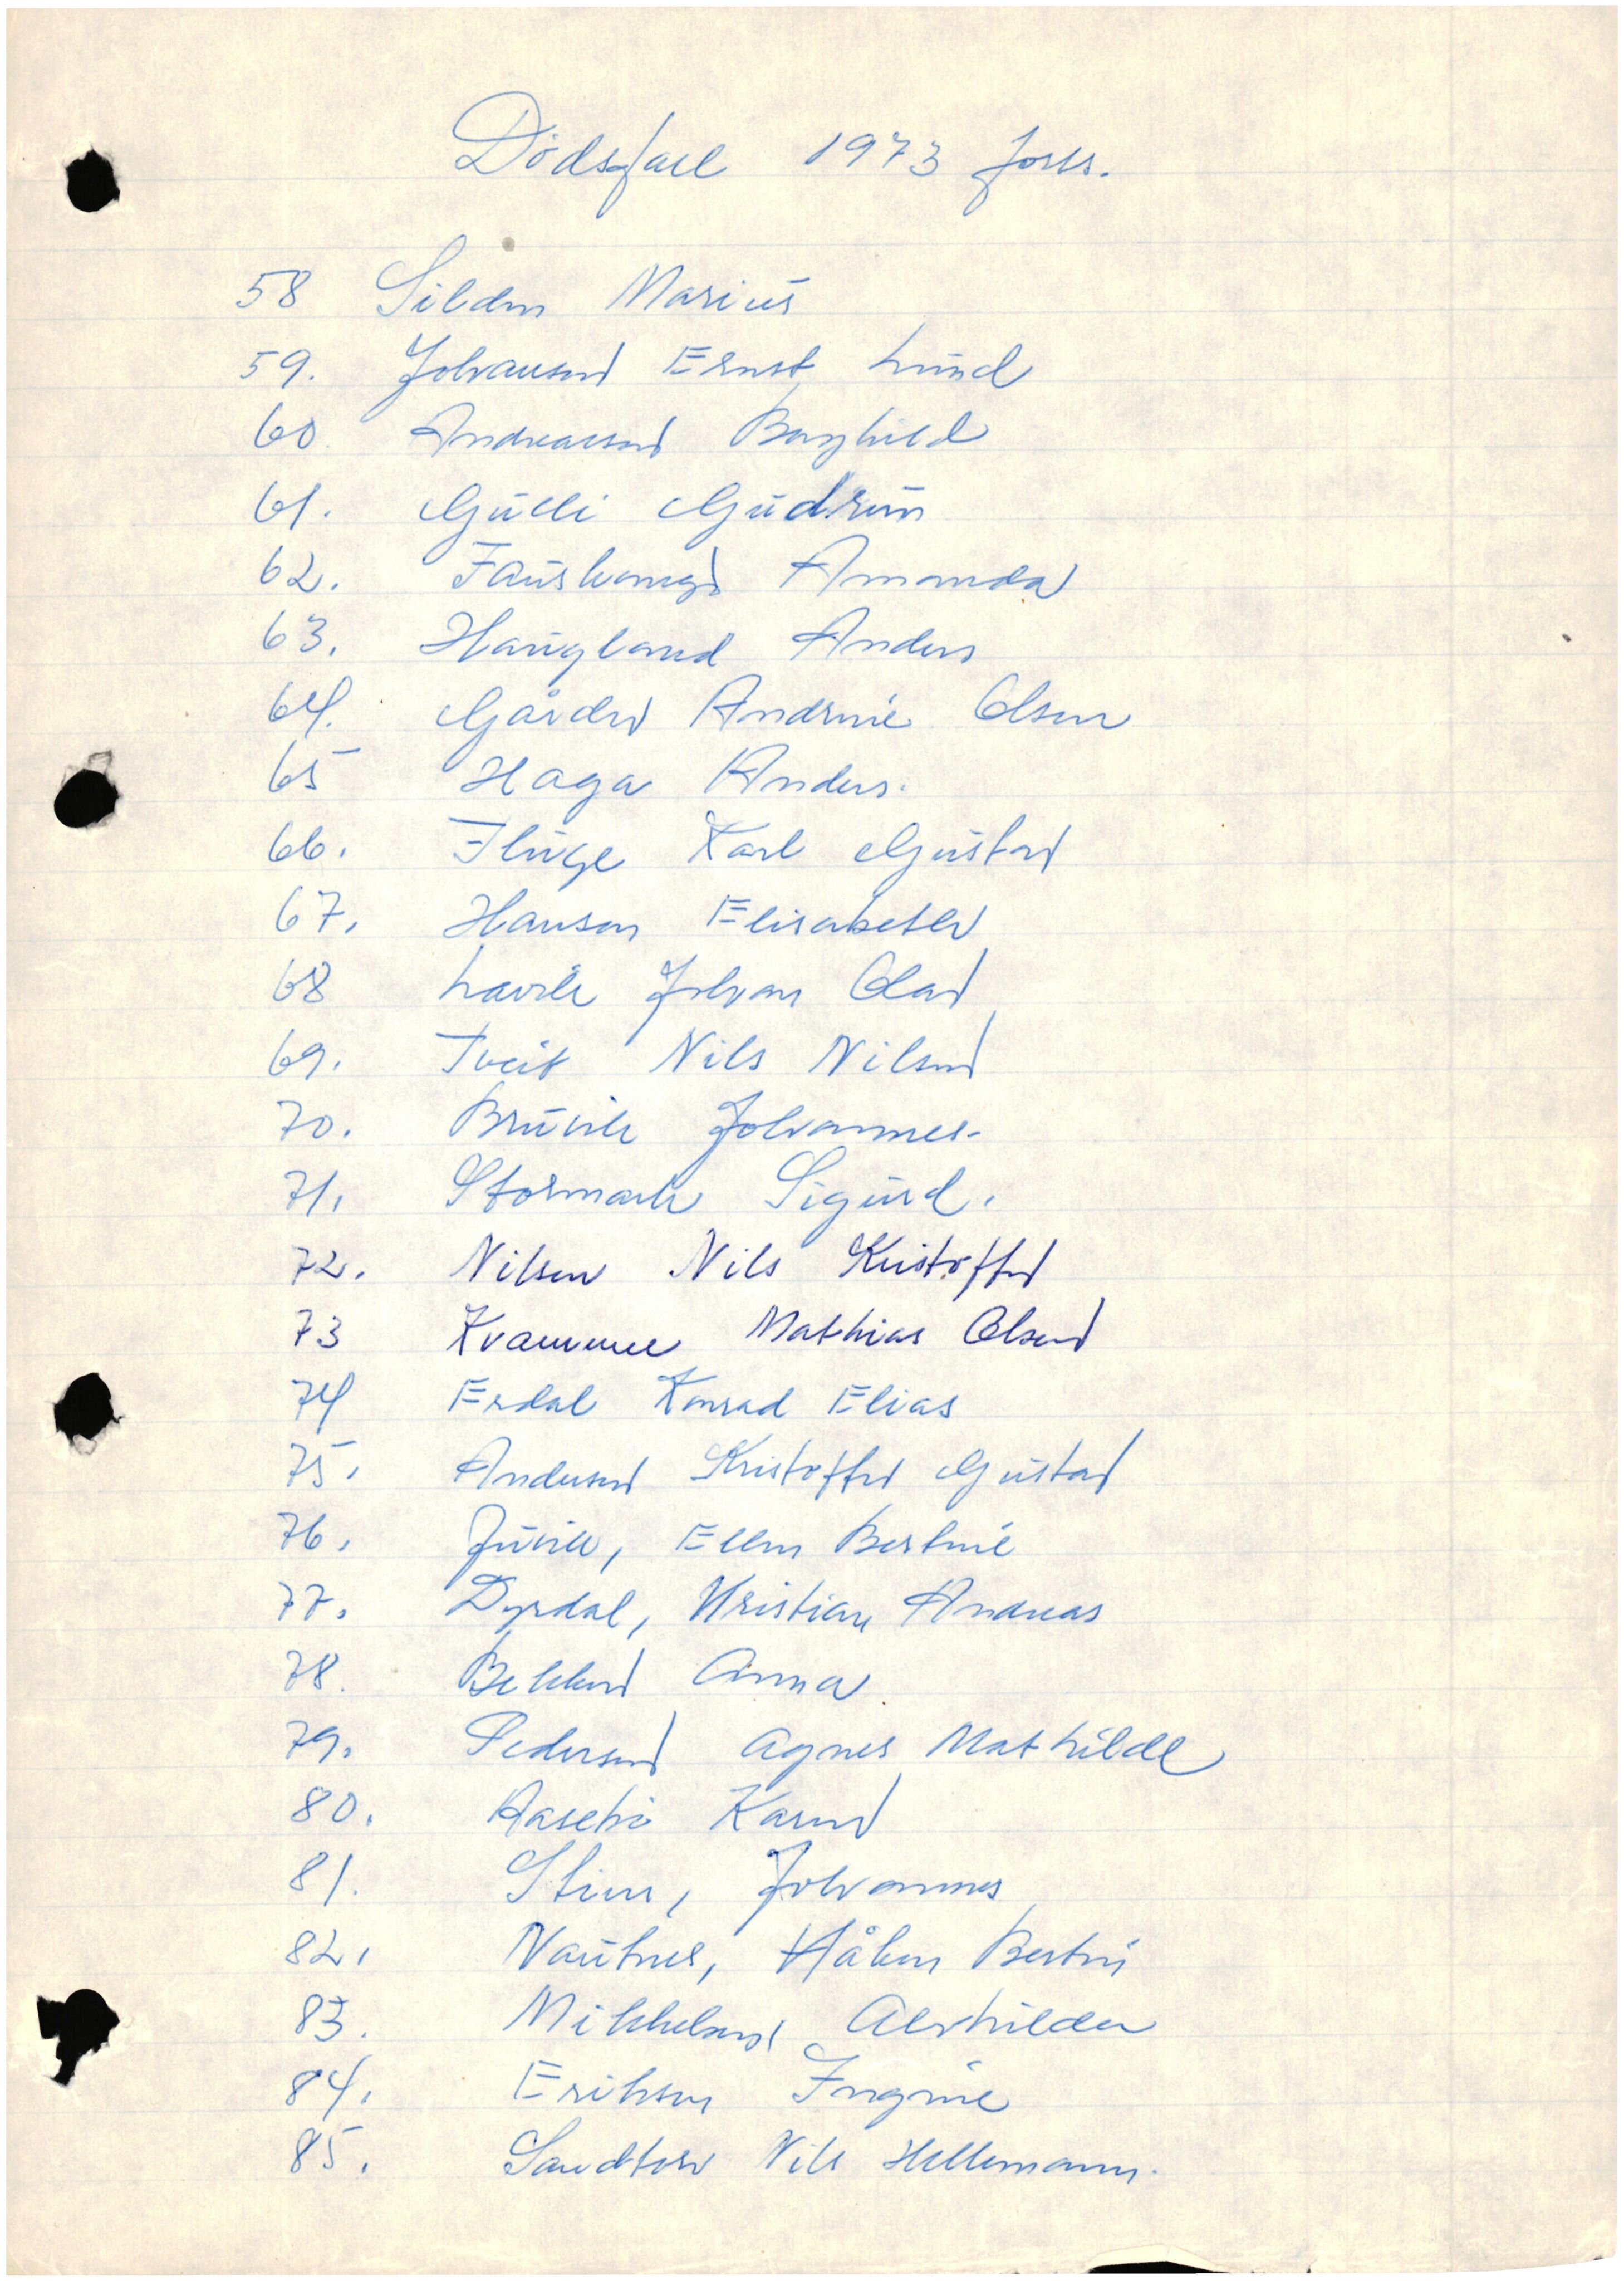 Dødsfall 1973 forts.
58 Silden Marius
59. Johansen Ernst Lund
60 Andreassen Borghild
61. Gulli Gudrun
62. Fauskanger Amanda
63. Haugland Anders
64. Gården Andrine Olsen
65 Haga Anders.
66. Fluge Karl Gustav
67. Hanson Elisabeth
68 Lavik Johan Olav
69. Tveit Nils Nilsen
70. Bruvik Johannes.
71. Stormark Sigurd.
72. Nilsen Nils Kristoffer
73 Kvamme Mathias Olsen
74 Erdal Konrad Elias
75. Andersen Kristoffer Gustav
76. Juvik, Ellen Bertine
77. Dyrdal, Kristian Andreas
78. Bekken Anna
79. Pedersen Agnes Mathilde
80. Aasebø Karen
81. Johannes
82. Håkon Bertin
83. Mikkelsen Alvhilda
84. Eriksen Ingine
85. Sandtorv Nils Hellemann.